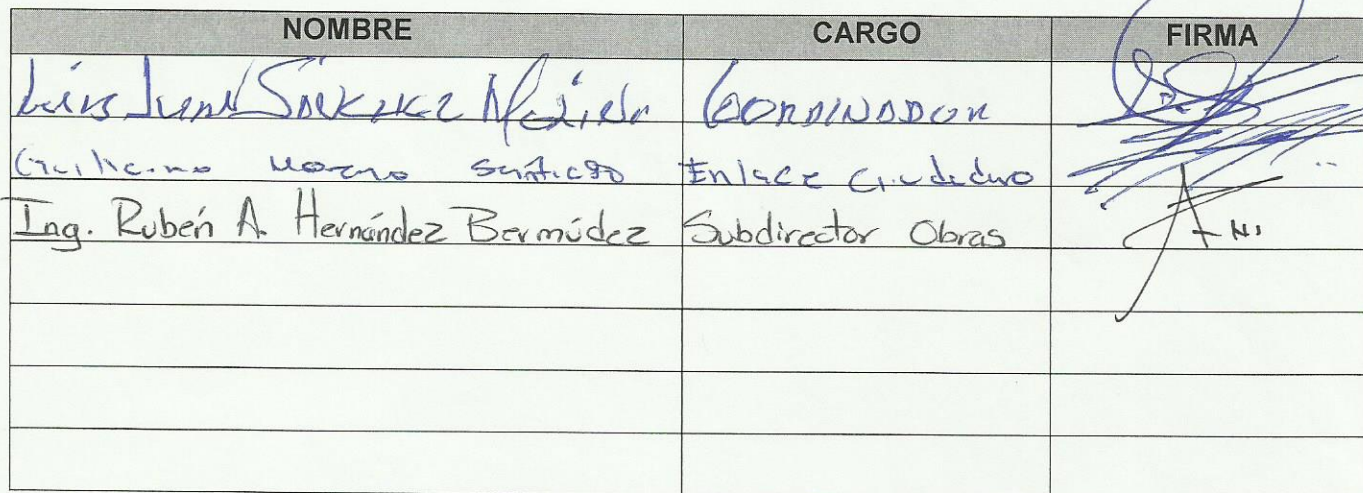 NOMBRE CARGO FIRMA
Luis Juan Sánchez Mejía COORDINADOR
Guillermo Moreno Santiago Enlace Ciudadano
Ing. Rubén A. Hernández Bermúdez Subdirector Obras